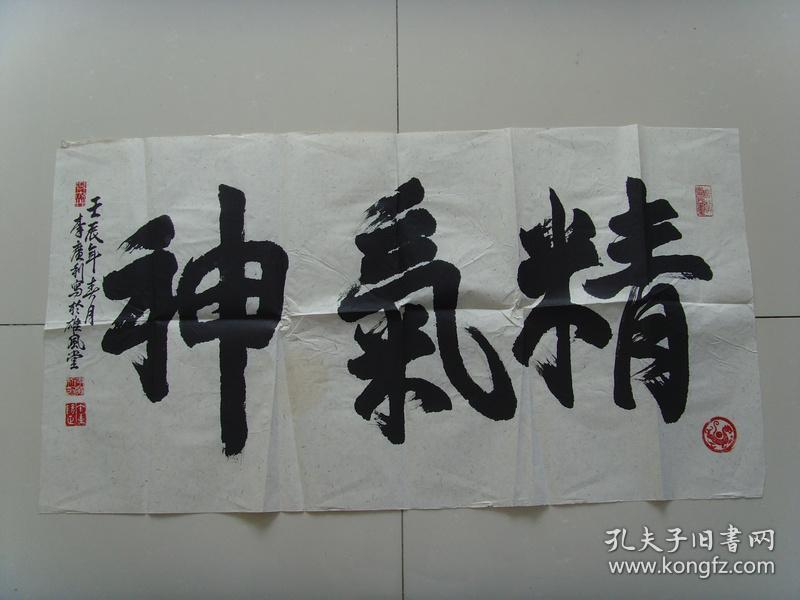 精氣神
壬辰年春月
李廣利写於雄風堂
孔夫子旧書网
www.kongfz.com